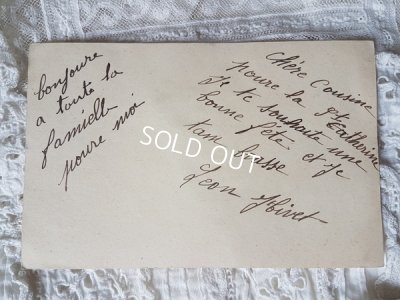 bonjoure
a toute la
famiell
poure moi
chère Cousine
poure la Ste Catherine
Je te souhaite une
bonne fête. et je
tan brasse
Leon Hivet
SOLD OUT